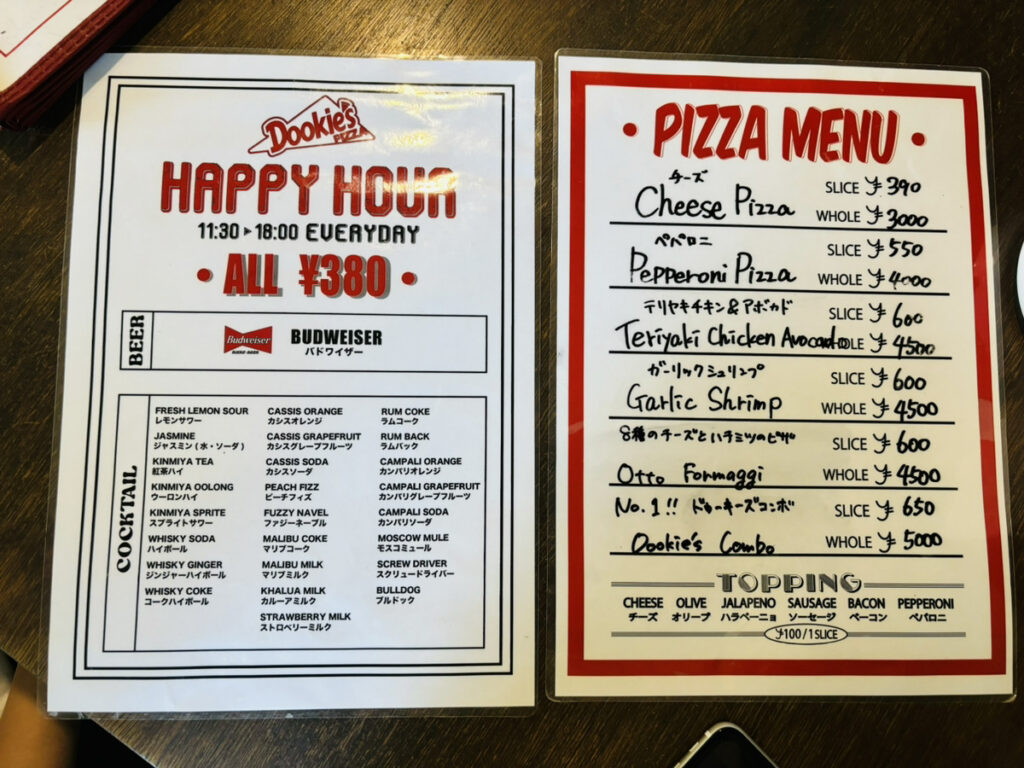 Dookie's
PIZZA
HAPPY HOUR
11:30 ▶ 18:00 EVERYDAY
• ALL ¥380 •
BEER
Budweiser
BUDWEISER
バドワイザー
COCKTAIL
FRESH LEMON SOUR
レモンサワー
JASMINE
ジャスミン (水・ソーダ)
KINMIYA TEA
紅茶ハイ
KINMIYA OOLONG
ウーロンハイ
KINMIYA SPRITE
スプライトサワー
WHISKY SODA
ハイボール
WHISKY GINGER
ジンジャーハイボール
WHISKY COKE
コークハイボール
CASSIS ORANGE
カシスオレンジ
CASSIS GRAPEFRUIT
カシスグレープフルーツ
CASSIS SODA
カシスソーダ
PEACH FIZZ
ピーチフィズ
FUZZY NAVEL
ファジーネーブル
MALIBU COKE
マリブコーク
MALIBU MILK
マリブミルク
KHALUA MILK
カルーアミルク
STRAWBERRY MILK
ストロベリーミルク
RUM COKE
ラムコーク
RUM BACK
ラムバック
CAMPALI ORANGE
カンパリオレンジ
CAMPALI GRAPEFRUIT
カンパリグレープフルーツ
CAMPALI SODA
カンパリソーダ
MOSCOW MULE
モスコミュール
SCREW DRIVER
スクリュードライバー
BULLDOG
ブルドック
• PIZZA MENU •
チーズ
Cheese Pizza
SLICE ¥390
WHOLE ¥3000
ペパロニ
Pepperoni Pizza
SLICE ¥550
WHOLE ¥4000
テリヤキチキン&アボカド
Teriyaki Chicken Avocado
SLICE ¥600
OLE ¥4500
ガーリックシュリンプ
Garlic Shrimp
SLICE ¥600
WHOLE ¥4500
8種のチーズとハチミツのピザ
Otto Formaggi
SLICE ¥600
WHOLE ¥4500
No.1!! ドゥーキーズコンボ
Dookie's Combo
SLICE ¥650
WHOLE ¥5000
TOPPING
CHEESE OLIVE JALAPENO SAUSAGE BACON PEPPERONI
チーズ オリーブ ハラペーニョ ソーセージ ベーコン ペパロニ
¥100/1SLICE